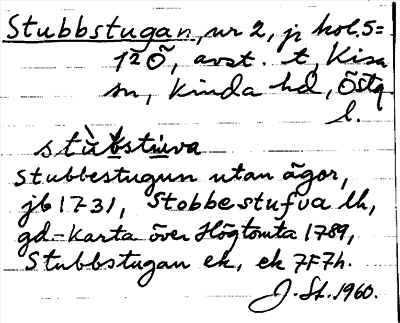 Stubbstugan, nr 2, jr kol. 5=
12Ö, avst. t. Kisa
sn, Kinda hd, Östg.
l.
stùbstùva
Stubbestugun utan ägor,
jb 1731, Stobbestufva lh,
gd-Karta över Högtomta 1789,
Stubbstugan ek, ek 7F7h.
J. St. 1960.